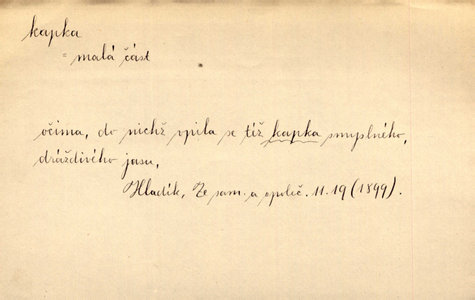 kapka
= malá část
očima, do nichž vpila se též kapka smyslného,
dráždivého jasu,
Hladík, Ze sam. a společ. 11.19 (1899).